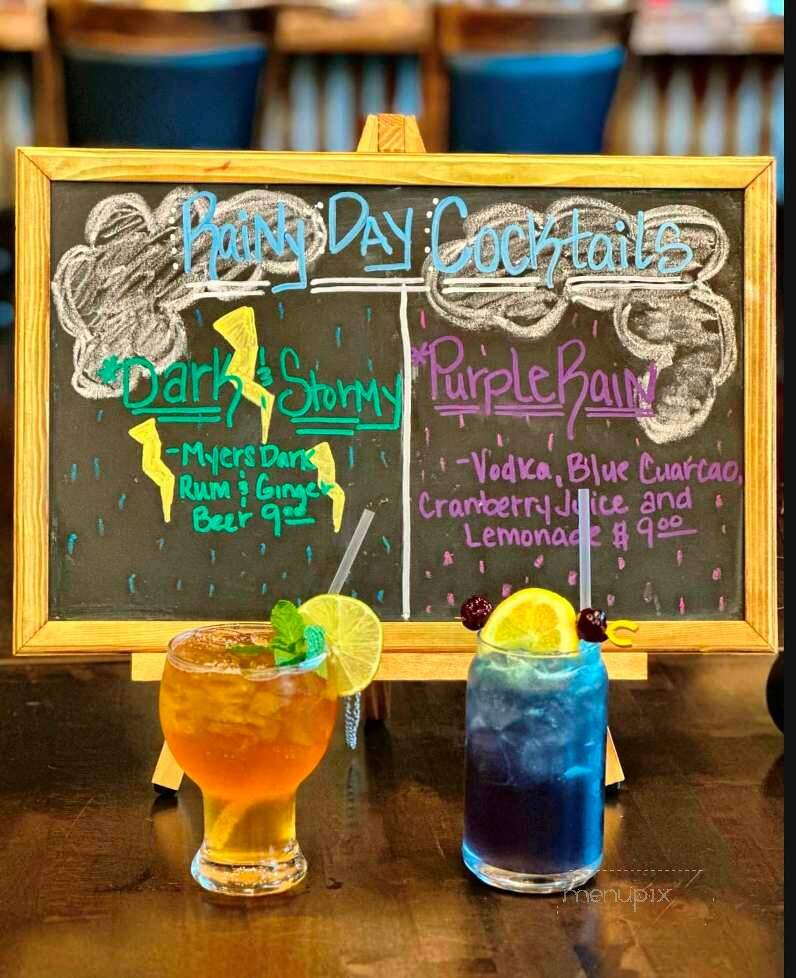 Rainy Day Cocktails
*Dark & Stormy
-Myers Dark
Rum & Ginger
Beer 9.00
*Purple Rain
-Vodka, Blue Cuarcao,
Cranberry Juice and
Lemonade $ 9.00
menupix